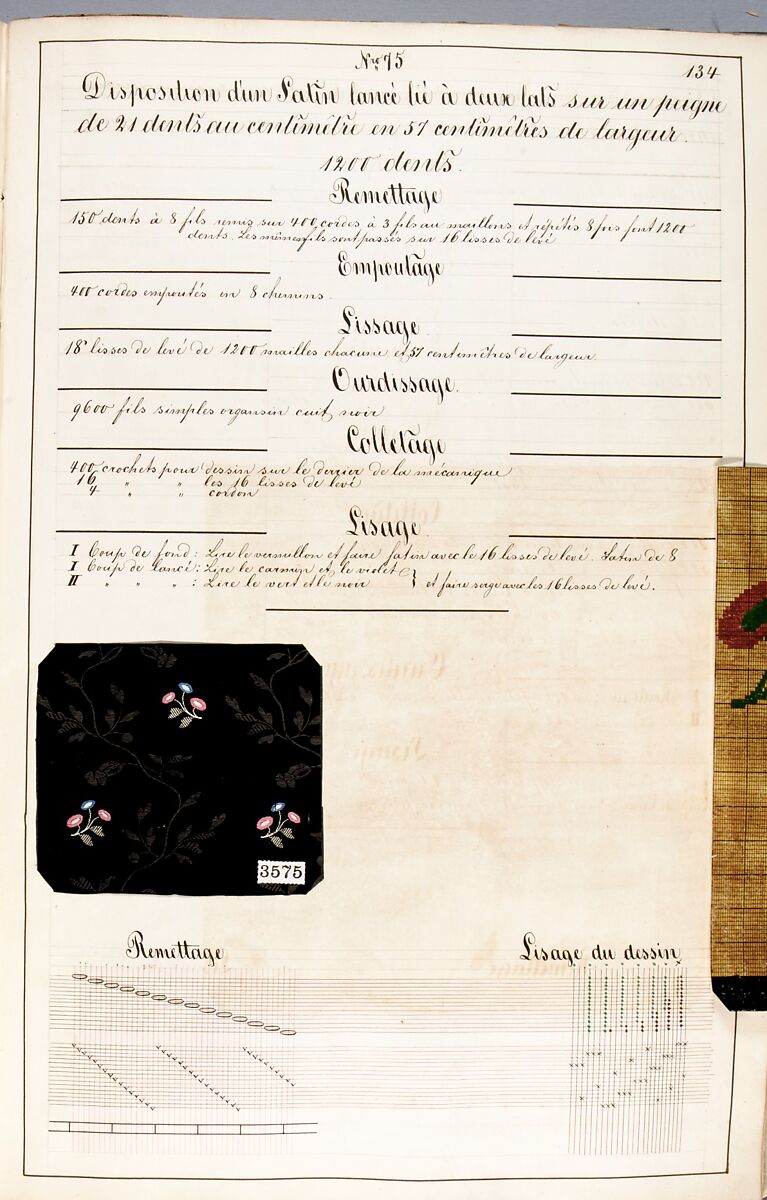 Nro 75
134
Disposition d'un Satin lancé lié à deux lats sur un peigne
de 21 dents au centimètre en 57 centimètres de largeur.
1200 dents.
Remettage
150 dents à 8 fils remis sur 400 cordes à 3 fils au maillons et répétés 8 fois font 1200
dents. Les mêmes fils sont passés sur 16 lisses de levé
Empoutage
400 cordes empoutés en 8 chemins.
Lissage
18 lisses de levé de 1200 mailles chacune et 57 centimètres de largeur.
Ourdissage.
9600 fils simples organsin cuit noir
Colletage
400 crochets pour dessin sur le derrier de la mécanique
16 " " les 16 lisses de levé
4 " " cordon
Lisage
I Coup de fond: Lire le vermillon et faire satin avec le 16 lisses de levé. Satin de 8
I Coup de lancé: Lire le carmin et le violet
II " " " : Lire le vert et le noir } et faire serge avec les 16 lisses de levé.
3575
Remettage
Lisage du dessin